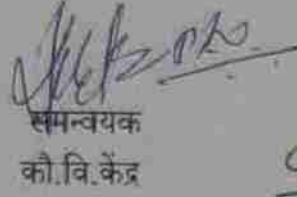 समन्वयक
कौ.वि.केंद्र